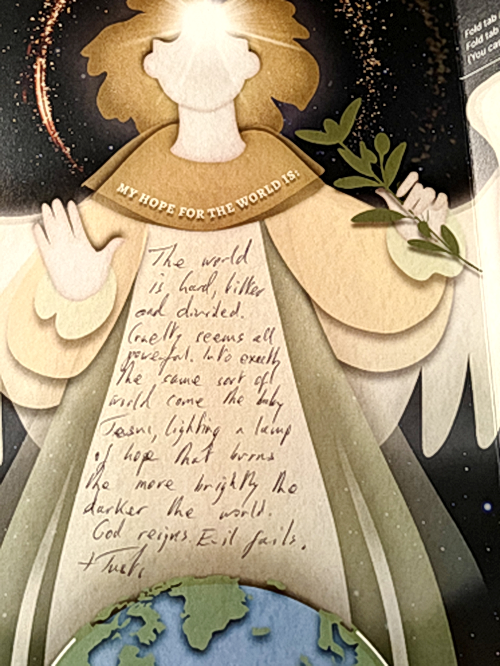 Fold tab
Fold tab
(You ca
MY HOPE FOR THE WORLD IS:
The world
is hard, bitter
and divided.
Cruelty seems all
powerful. Into exactly
the same sort of
world came the baby
Jesus, lighting a lamp
of hope that burns
the more brightly the
darker the world.
God reigns. Evil fails.